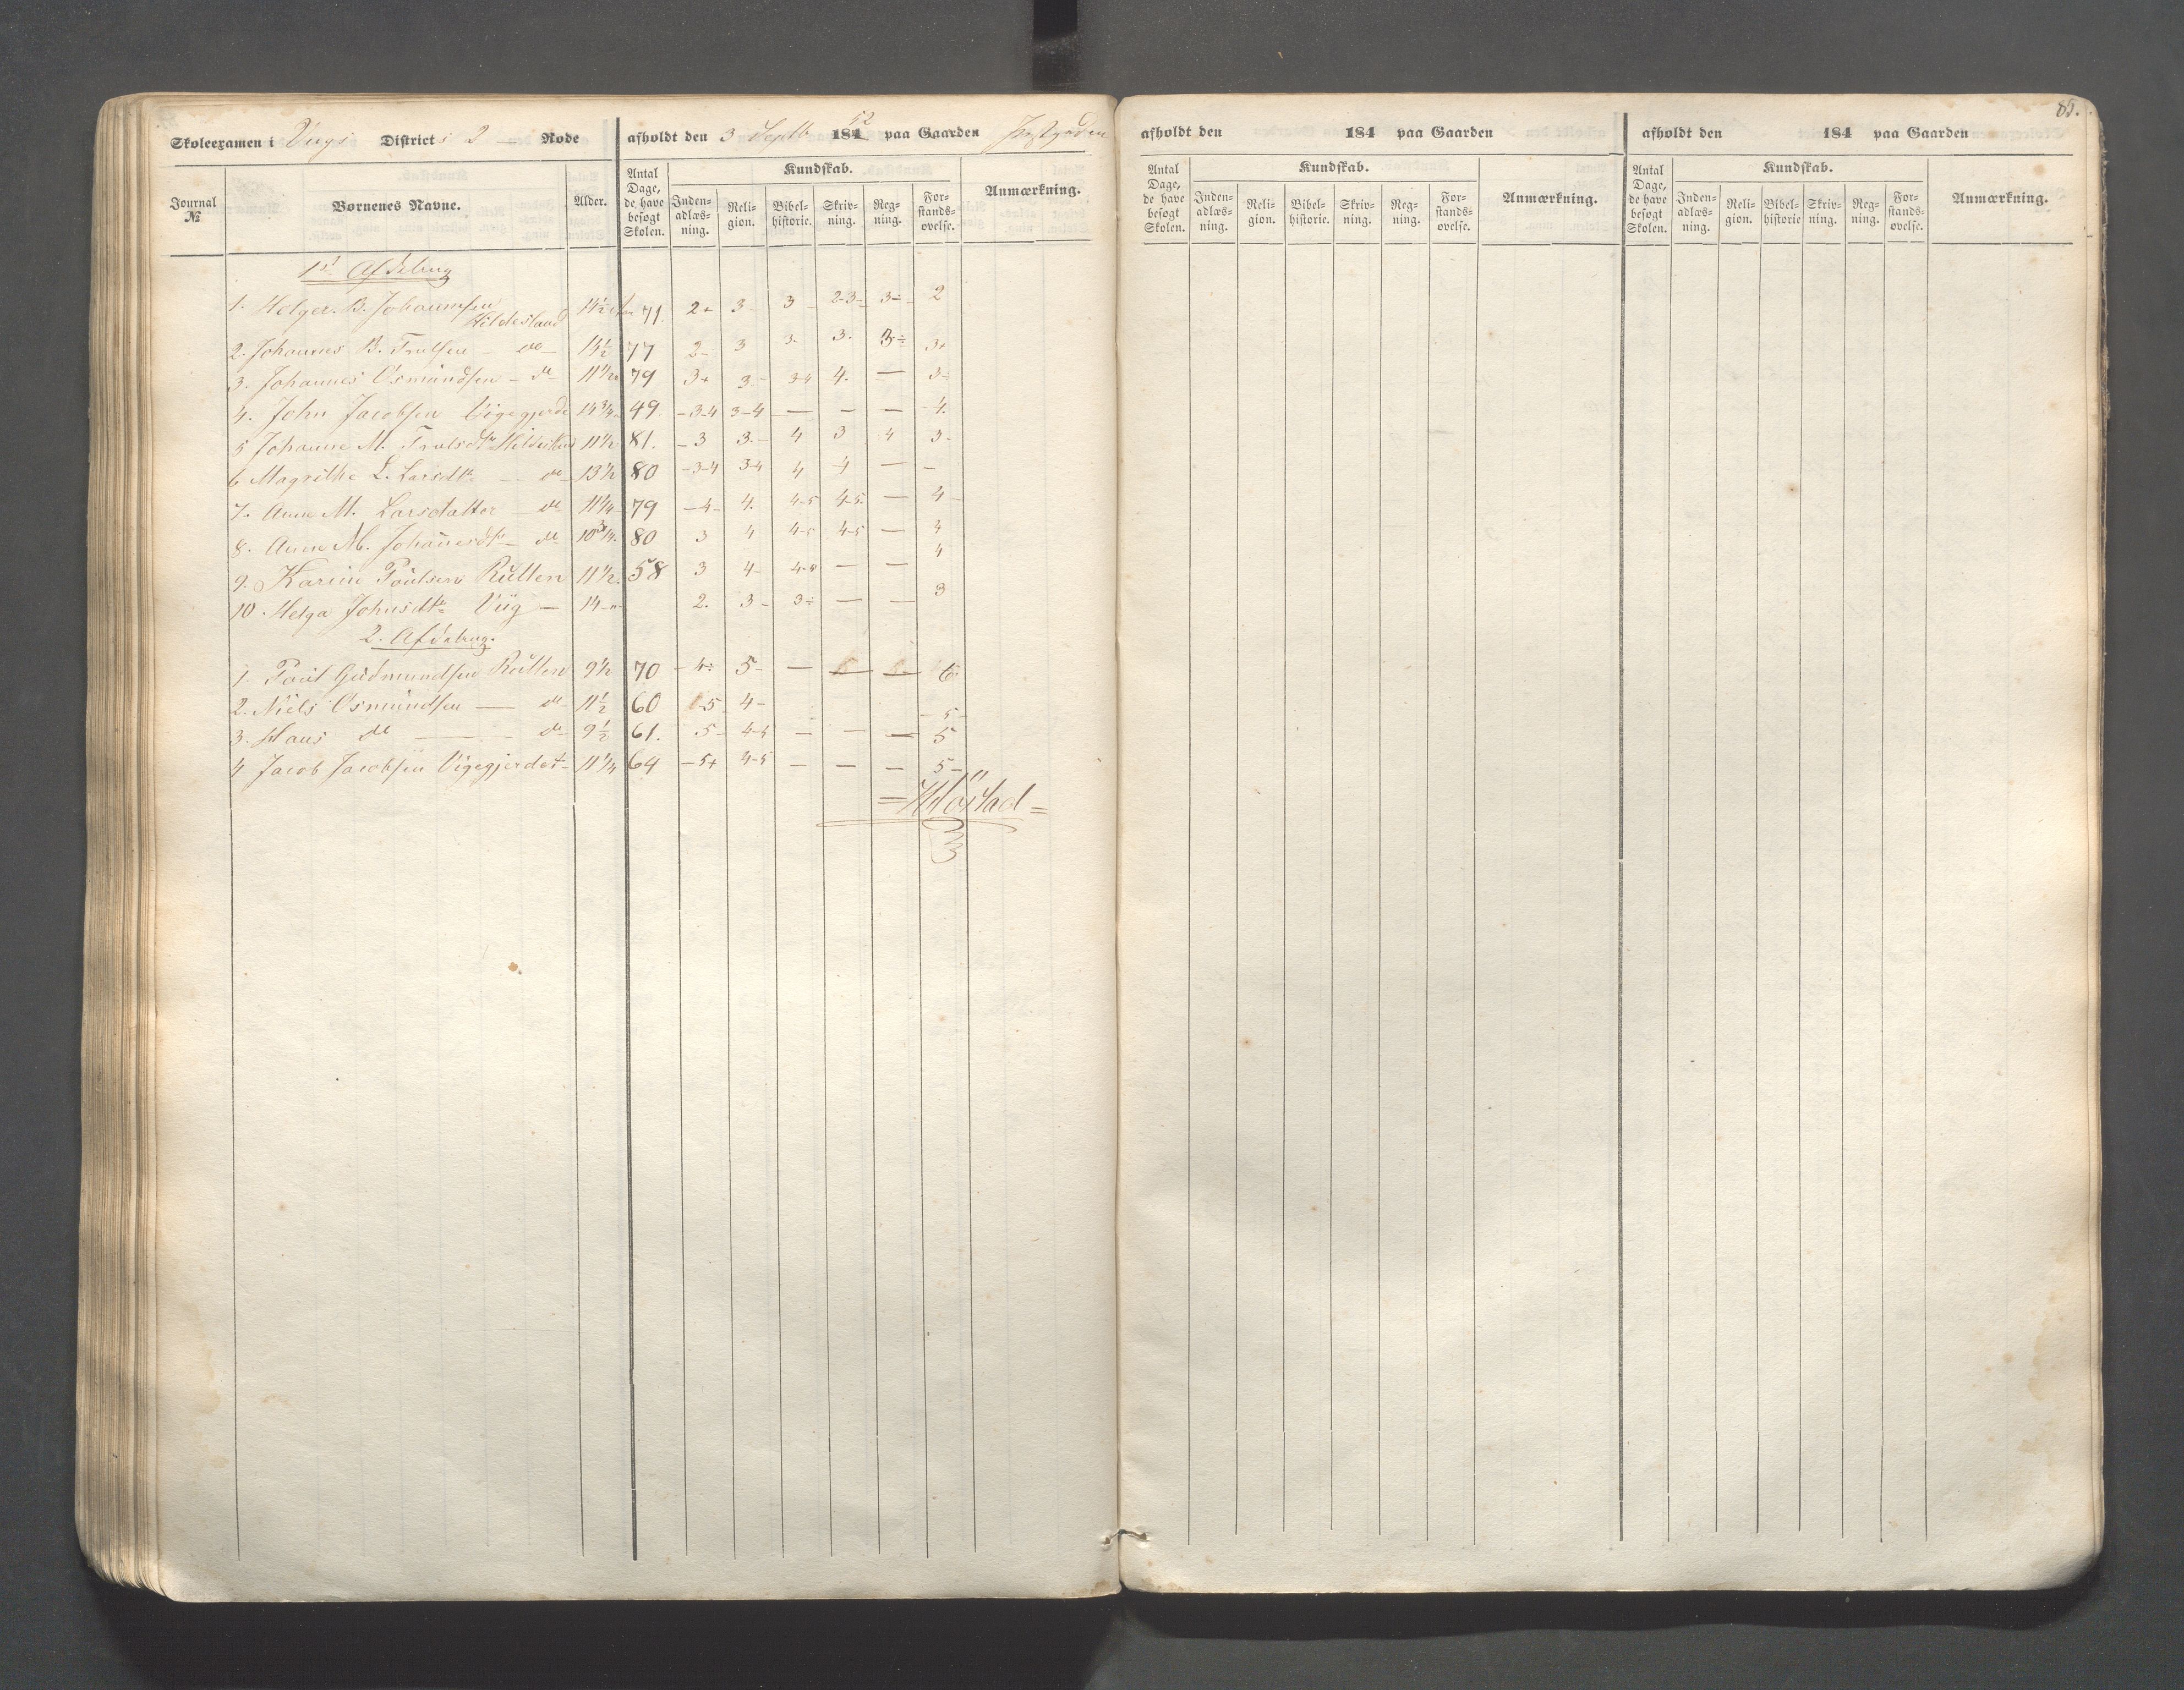 Skoleexamen i Viigs Districts 2 — Rode afholdt den 3 Septb 1852 paa Gaarden
Journal № Børnenes Navne. Alder. Antal Dage, de have besøgt Skolen. Kundskab. Inden-adlæs-ning. Reli-gion. Bibel-historie. Skriv-ning. Reg-ning. For-stands-øvelse. Anmærkning.
1ste Afdeling
1. Helger. B. Johannesen Hildesland 14½ 71 2+ 3 3 2-3- 3÷ 2
2. Johannes B. Trulsen — do — 13½ 77 2- 3 3. 3. 3÷ 3+
3. Johannes Osmundsen — do — 11½ 79 3+ 3- 3-4 4. — 3÷
4. John Jacobsen Vigegjerde 14¾ 49 -3-4 3-4 — — — 4.
5 Johanne M. Trulsdtr Hildesland 11½ 81. -3 3.- 4 3 4 3-
6 Magrithe L. Larsdtr — do 13½ 80 -3-4 3-4 4 4 — —
7. Anne M. Larsdatter — do 11¼ 79 -4- 4. 4-5 4-5. — 4-
8. Anne M. Johanesdtr — do 10¾ 80 3 4 4-5 4-5 — 4
9. Karine Poulsen Rutten 11½ 58 3 4- 4-5 — — 4
10. Helga Johnsdtr Viig — 14 -"- 2. 3- 3÷ — — 3
2. Afdeling.
1. Poul Gudmundsen Rutten 9½ 70 -4÷ 5- — — — 6
2. Niels Osmundsen — do 11½ 60 -5 4- 5-
3. Hans do — do 9½ 61. 5- 4-5 — — — 5
4 Jacob Jacobsen Vigegjerdet 11¼ 64 -5+ 4-5 — — — 5-
85.
afholdt den 184 paa Gaarden
Antal Dage, de have besøgt Skolen. Kundskab. Inden-adlæs-ning. Reli-gion. Bibel-historie. Skriv-ning. Reg-ning. For-stands-øvelse. Anmærkning.
afholdt den 184 paa Gaarden
Antal Dage, de have besøgt Skolen. Kundskab. Inden-adlæs-ning. Reli-gion. Bibel-historie Skriv-ning. Reg-ning. For-stands-øvelse. Anmærkning.